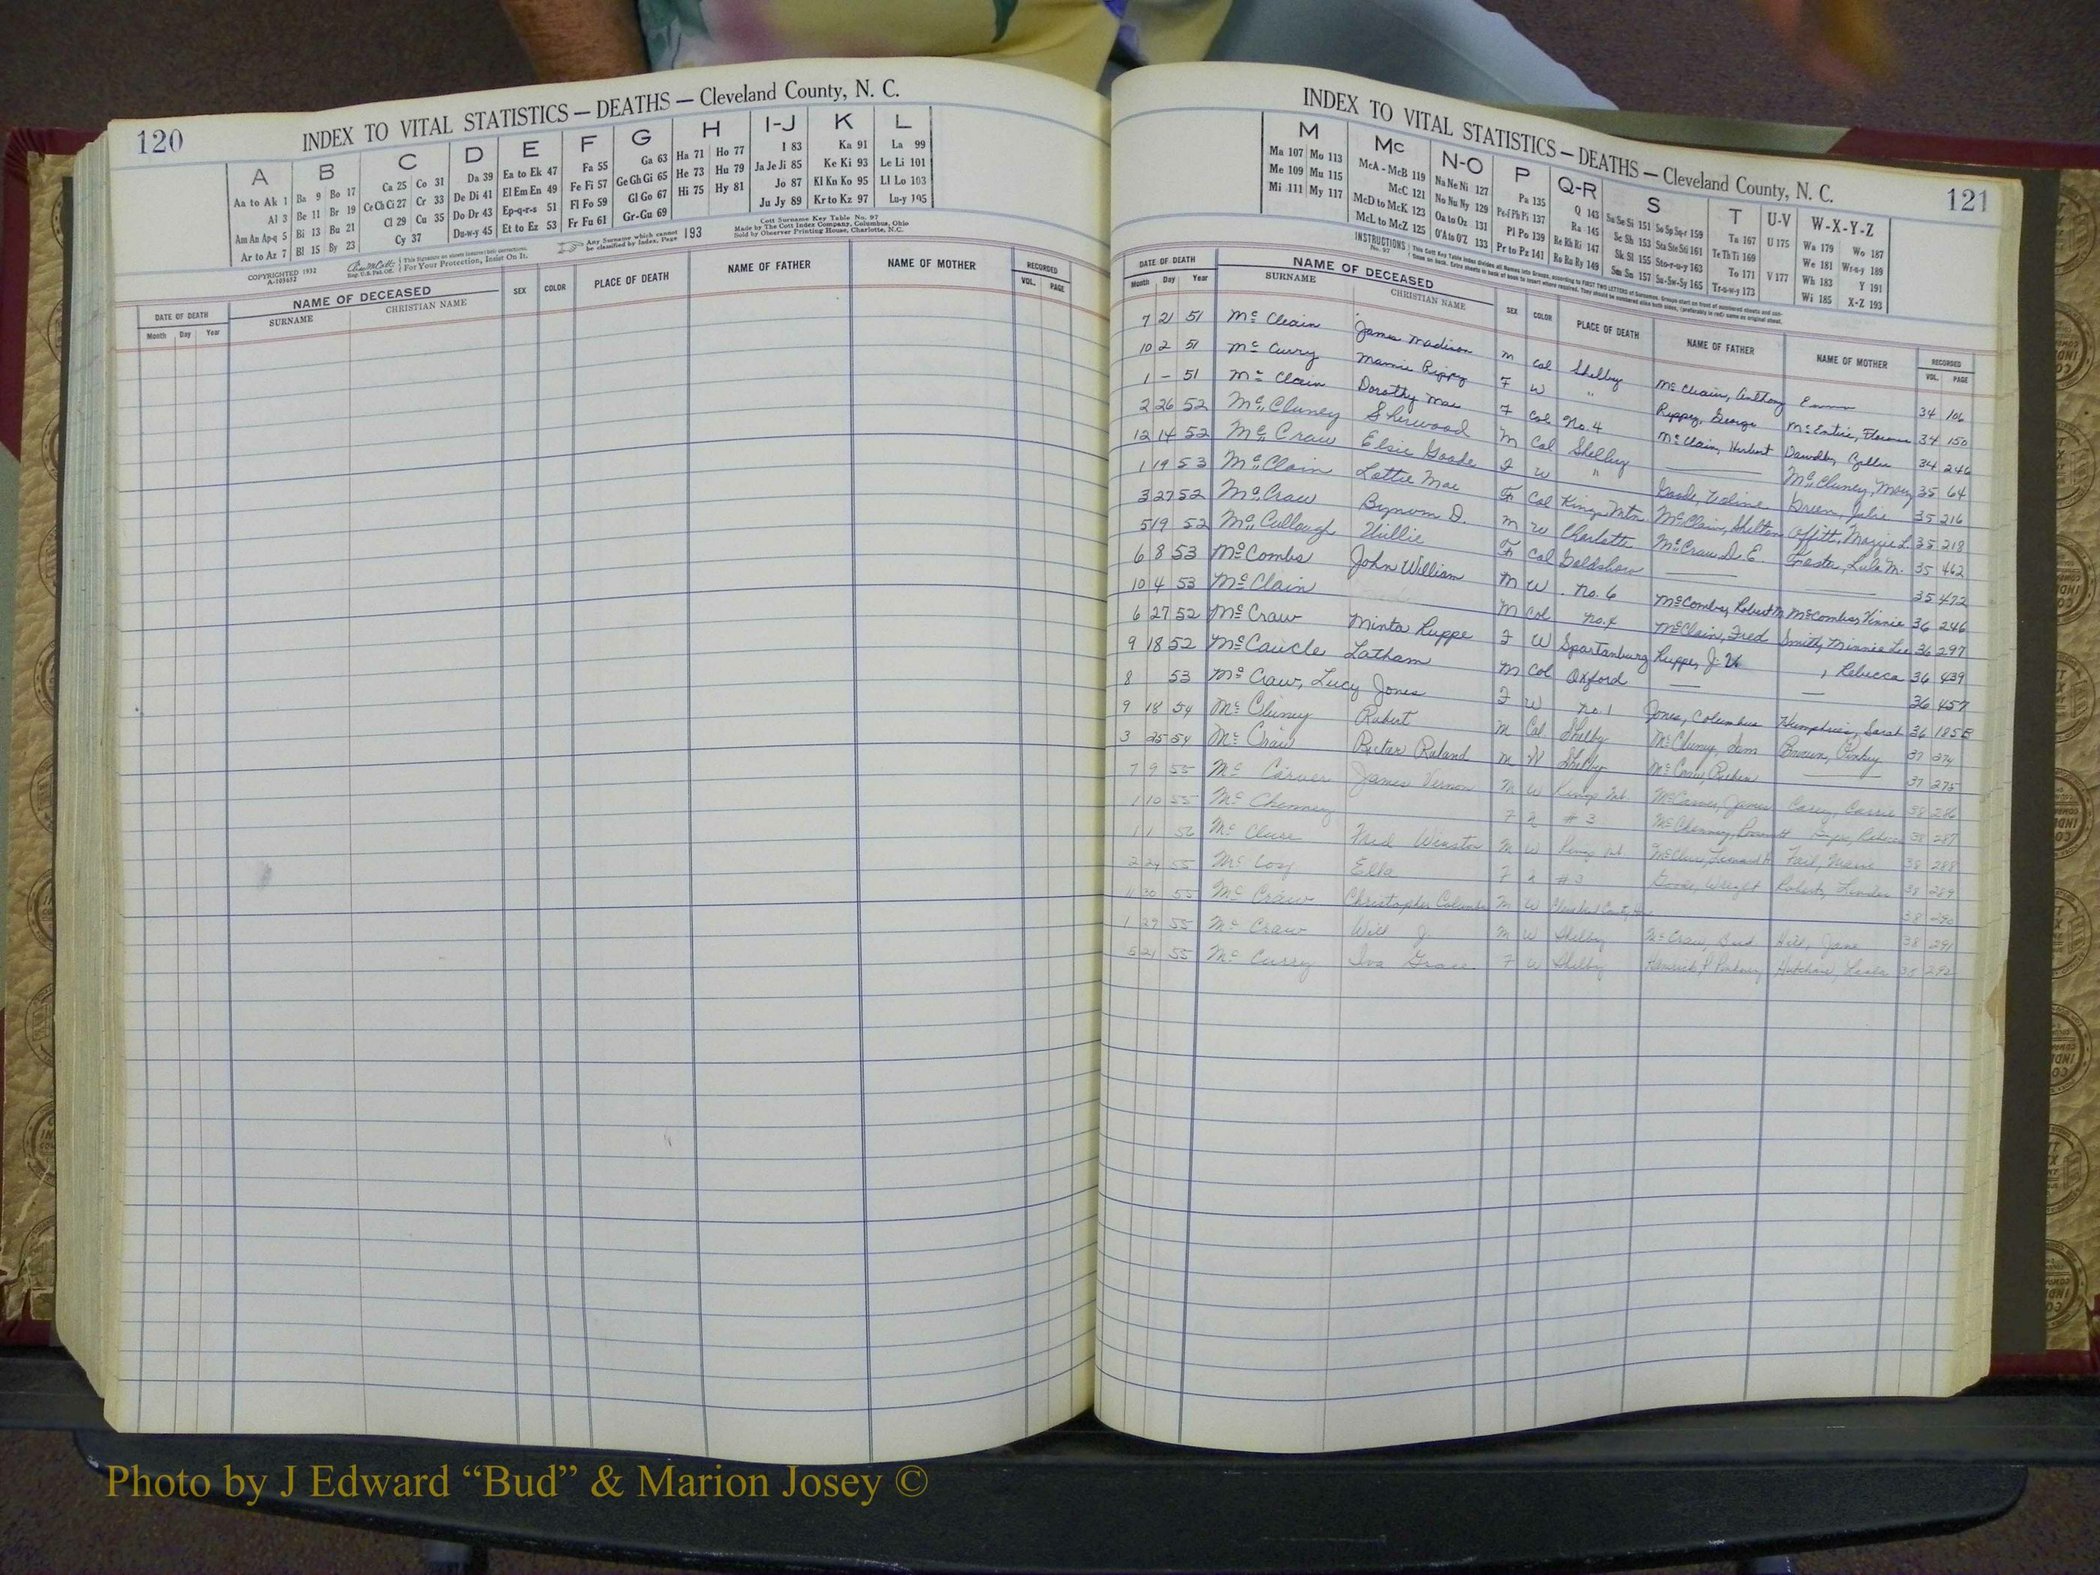 120
INDEX TO VITAL STATISTICS — DEATHS — Cleveland County, N. C.
A B C D E F G H I-J K L
Aa to Ak 1 Ba 9 Bo 17 Ca 25 Co 31 Da 39 Ea to Ek 47 Fa 55 Ga 63 Ha 71 Ho 77 I 83 Ka 91 La 99
Al 3 Be 11 Br 19 Ce Ch Ci 27 Cr 33 De Di 41 El Em En 49 Fe Fi 57 Ge Gh Gi 65 He 73 Hu 79 Ja Je Ji 85 Ke Ki 93 Le Li 101
Am An Ap-q 5 Bi 13 Bu 21 Cl 29 Cu 35 Do Dr 43 Ep-q-r-s 51 Fl Fo 59 Gl Go 67 Hi 75 Hy 81 Jo 87 Kl Kn Ko 95 Ll Lo 103
Ar to Az 7 Bl 15 By 23 Cy 37 Du-w-y 45 Et to Ez 53 Fr Fu 61 Gr-Gu 69 Ju Jy 89 Kr to Kz 97 Lu-y 105
COPYRIGHTED 1932
A-103652
For Your Protection, Insist On It.
Any Surname which cannot be classified by Index, Page 193
Cott Surname Key Table No. 97
Made by The Cott Index Company, Columbus, Ohio
Sold by Observer Printing House, Charlotte, N.C.
DATE OF DEATH NAME OF DECEASED SEX COLOR PLACE OF DEATH NAME OF FATHER NAME OF MOTHER RECORDED
Month Day Year SURNAME CHRISTIAN NAME VOL. PAGE
INDEX TO VITAL STATISTICS — DEATHS — Cleveland County, N. C.
121
M Mc N-O P Q-R S T U-V W-X-Y-Z
Ma 107 Mo 113 McA - McB 119 Na Ne Ni 127 Pa 135 Q 143 Sa Se Si 151 So Sp Sq-r 159 Ta 167 U 175 Wa 179 Wo 187
Me 109 Mu 115 McC 121 No Nu Ny 129 Pe-f Ph Pi 137 Ra 145 Sc Sh 153 Sta Ste Sti 161 Te Th Ti 169 V 177 We 181 Wr-u-y 189
Mi 111 My 117 McD to McK 123 Oa to Oz 131 Pl Po 139 Re Rh Ri 147 Sk Sl 155 Sto-r-u-y 163 To 171 Wh 183 Y 191
McL to McZ 125 O'A to O'Z 133 Pr to Pz 141 Ro Ru Ry 149 Sm Sn 157 Su-Sw-Sy 165 Tr-u-w-y 173 Wi 185 X-Z 193
INSTRUCTIONS No. 97
DATE OF DEATH NAME OF DECEASED SEX COLOR PLACE OF DEATH NAME OF FATHER NAME OF MOTHER RECORDED
Month Day Year SURNAME CHRISTIAN NAME VOL. PAGE
7 21 51 McClain James Madison M Col Shelby McClain, Anthony Emma 34 106
10 2 51 McCurry Mamie Rippy F W " Rippy, George McEntire, Florence 34 150
1 – 51 McClain Dorothy Mae F Col No. 4 McClain, Herbert 34 246
2 26 52 McCluney Sherwood M Col Shelby — McCluney, Mary 35 64
12 14 52 McCraw Elsie Goode F W " Goode, Green, Julie 35 216
1 19 53 McClain Lottie Mae F Col Kings Mtn. McClain, Shelton Maggie L. 35 218
3 27 52 McCraw Bynum D. M W Charlotte McCraw D. E. Foster, Lula M. 35 462
5 19 52 McCullough Willie F Col Goldsboro — — 35 472
6 8 53 McCombs John William M W No. 6 McCombs, Robert M. McCombs, Vinnie 36 246
10 4 53 McClain M Col No. 4 McClain, Fred Smith, Minnie Lee 36 297
6 27 52 McCraw Minta Ruppe F W Spartanburg Ruppe, J. , Rebecca 36 439
9 18 52 McCaucle Latham M Col Oxford — — 36 457
8 53 McCraw, Lucy Jones F W No. 1 Jones, Columbus Humphries, Sarah 36 185
9 18 54 McCluney Robert M Col. Shelby McCluney, Sam Brown, Pinkey 37 274
3 25 54 McCraw Roland M W Shelby McCraw, — 37 275
7 9 55 McCarver James Vernon M W Kings Mt. McCarver, James Carrie 38 286
1 10 55 McChenney F #3 McChenney, 38 287
1 1 56 McClure Fred Winston M W Kings Mt. McClure, 38 288
2 24 55 McCoy Ella F #3 Goode, Wright Roberts, 38 289
11 30 55 McCraw Christopher Columbus M W 38 290
1 29 55 McCraw Will J. M W Shelby McCraw, Bud Hill, Jane 38 291
5 21 55 McCurry Iva Grace F W Shelby 38 292
Photo by J Edward “Bud” & Marion Josey ©